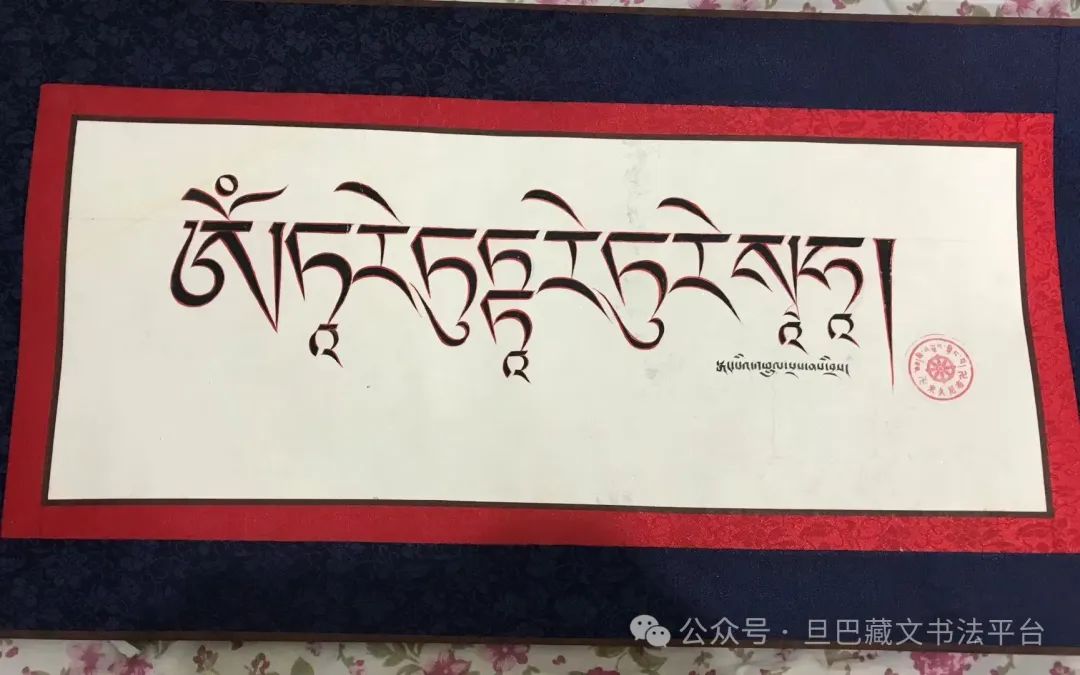 ཨོཾཏཱརེཏུཏྟཱརེཏུརེསྭཱཧཱ།
公众号 · 旦巴藏文书法平台